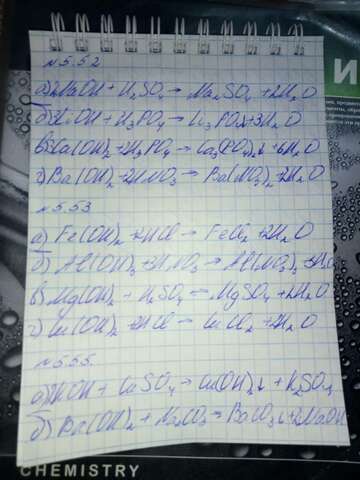 №5.52
а) 2NaOH + H₂SO₄ → Na₂SO₄ + 2H₂O
б) 3LiOH + H₃PO₄ → Li₃PO₄ + 3H₂O
в) 3Ca(OH)₂ + 2H₃PO₄ → Ca₃(PO₄)₂↓ + 6H₂O
г) Ba(OH)₂ + 2HNO₃ → Ba(NO₃)₂ + 2H₂O
№5.53
а) Fe(OH)₂ + 2HCl → FeCl₂ + 2H₂O
б) Al(OH)₃ + 3HNO₃ → Al(NO₃)₃ + 3H₂O
в) Mg(OH)₂ + H₂SO₄ → MgSO₄ + 2H₂O
г) Cu(OH)₂ + 2HCl → CuCl₂ + 2H₂O
№5.55.
а) 2KOH + CuSO₄ → Cu(OH)₂↓ + K₂SO₄
б) Ba(OH)₂ + Na₂CO₃ → BaCO₃↓ + 2NaOH
CHEMISTRY